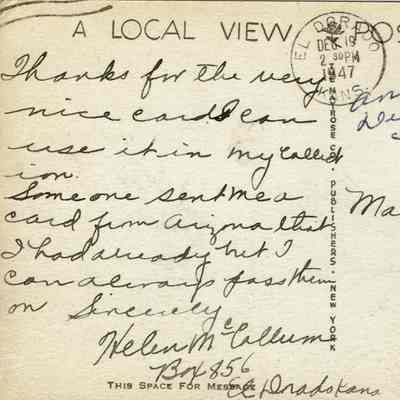 A LOCAL VIEW POS
EL DORADO
DEC 19
2 30PM
1947
KANS.
Thanks for the very
nice card. I can
use it in my collect
ion.
Someone sent me a
card from Arizona that
I had already but I
can always pass them
on Sincerely
Helen McCallum
Box 856
El Dorado Kans
THIS SPACE FOR MESSAGE
PUBLISHERS · NEW YORK
Ma